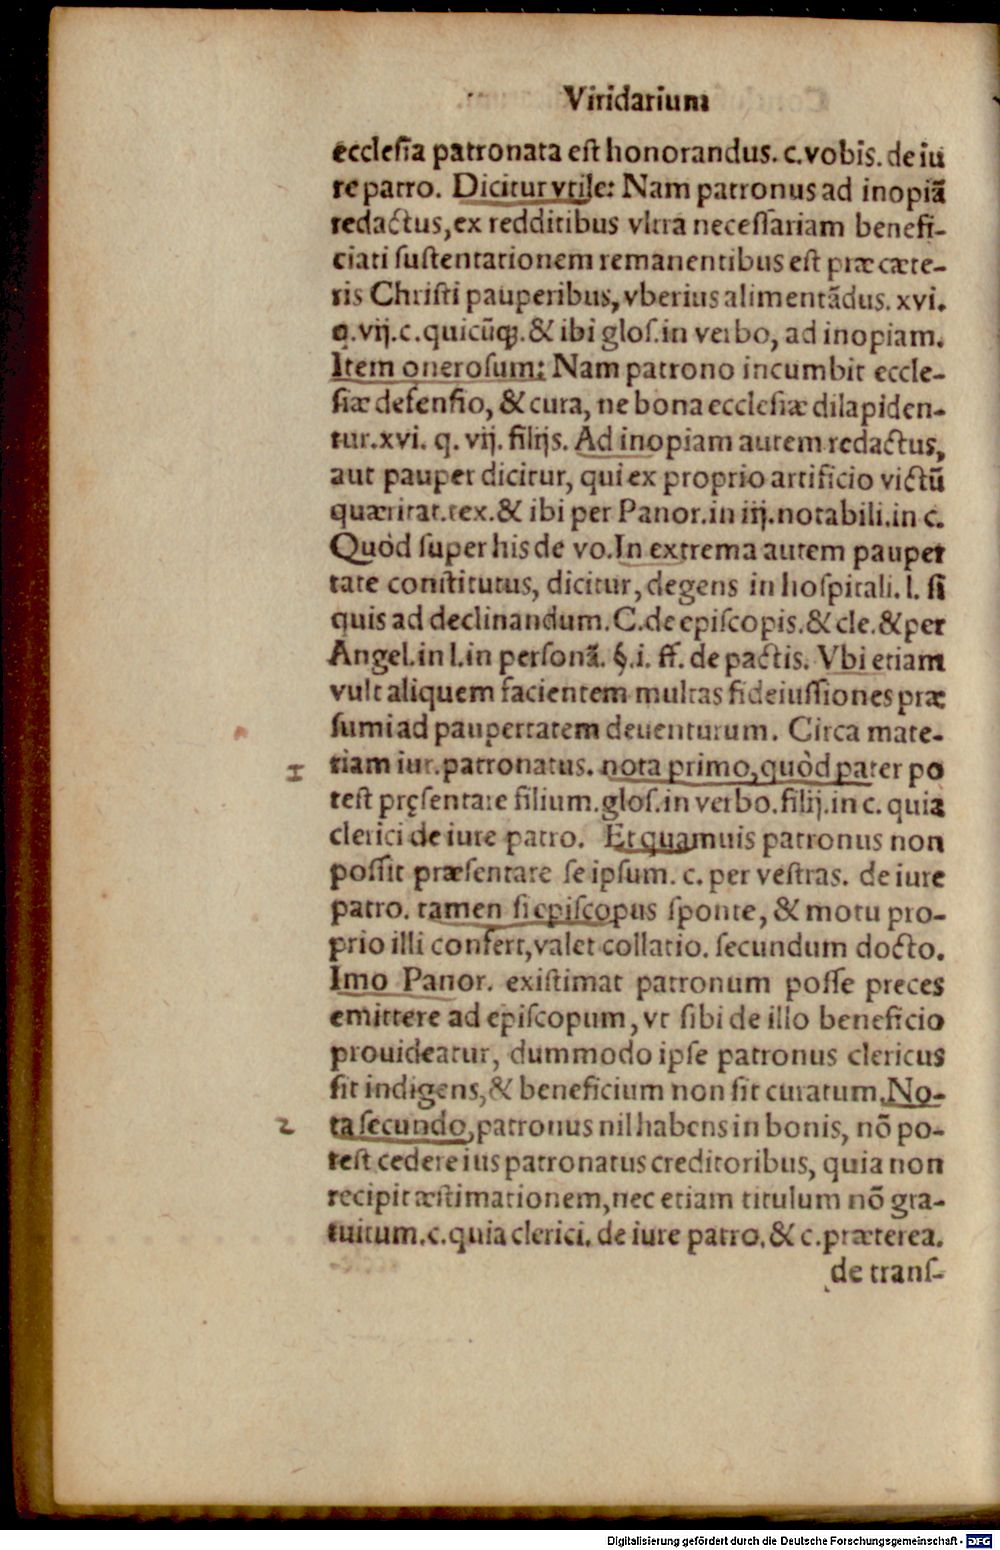 Viridarium
ecclesia patronata est honorandus. c. vobis. de iu
re patro. Dicitur vtile: Nam patronus ad inopiã
redactus, ex redditibus vltra necessariam benefi-
ciati sustentationem remanentibus est præ cæte-
ris Christi pauperibus, vberius alimentãdus. xvi.
q. vij. c. quicũq;. & ibi glos. in verbo, ad inopiam.
Item onerosum: Nam patrono incumbit eccle-
siæ defensio, & cura, ne bona ecclesiæ dilapiden-
tur. xvi. q. vij. filijs. Ad inopiam autem redactus,
aut pauper dicitur, qui ex proprio artificio victũ
quæritat. tex. & ibi per Panor. in iij. notabili. in c.
Quòd super his de vo. In extrema autem pauper
tate constitutus, dicitur, degens in hospitali. l. si
quis ad declinandum. C. de episcopis. & cle. & per
Angel. in l. in personã. §. i. ff. de pactis. Vbi etiam
vult aliquem facientem multas fideiussiones præ
sumi ad paupertatem deuenturum. Circa mate-
1 riam iur. patronatus. nota primo, quòd pater po
test pręsentare filium. glos. in verbo. filij. in c. quia
clerici de iure patro. Et quamuis patronus non
possit præsentare se ipsum. c. per vestras. de iure
patro. tamen si episcopus sponte, & motu pro-
prio illi confert, valet collatio. secundum docto.
Imo Panor. existimat patronum posse preces
emittere ad episcopum, vt sibi de illo beneficio
prouideatur, dummodo ipse patronus clericus
sit indigens, & beneficium non sit curatum. No-
2 ta secundo, patronus nil habens in bonis, nõ po-
test cedere ius patronatus creditoribus, quia non
recipit æstimationem, nec etiam titulum nõ gra-
tuitum. c. quia clerici. de iure patro. & c. præterea.
de trans-
Digitalisierung gefördert durch die Deutsche Forschungsgemeinschaft - DFG